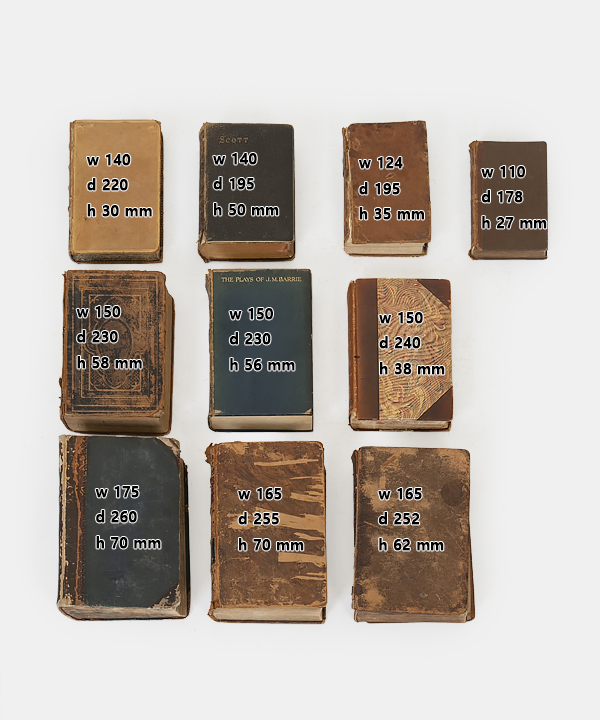 w 140
d 220
h 30 mm
Scott
w 140
d 195
h 50 mm
w 124
d 195
h 35 mm
w 110
d 178
h 27 mm
w 150
d 230
h 58 mm
THE PLAYS OF J.M.BARRIE
w 150
d 230
h 56 mm
w 150
d 240
h 38 mm
w 175
d 260
h 70 mm
w 165
d 255
h 70 mm
w 165
d 252
h 62 mm